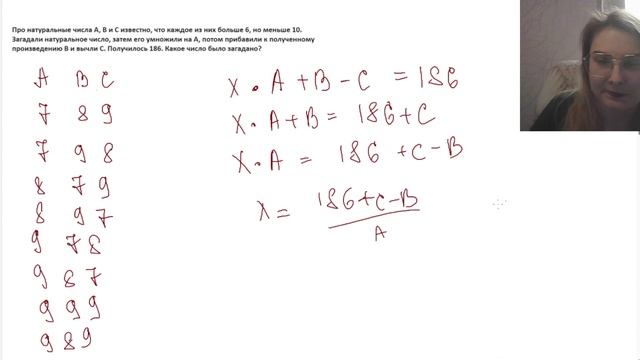 Про натуральные числа A, B и C известно, что каждое из них больше 6, но меньше 10.
Загадали натуральное число, затем его умножили на A, потом прибавили к полученному
произведению B и вычли C. Получилось 186. Какое число было загадано?
A B C
7 8 9
7 9 8
8 7 9
8 9 7
9 7 8
9 8 7
9 9 9
9 8 9
X • A + B - C = 186
X • A + B = 186 + C
X • A = 186 + C - B
X = 186 + C - B
A